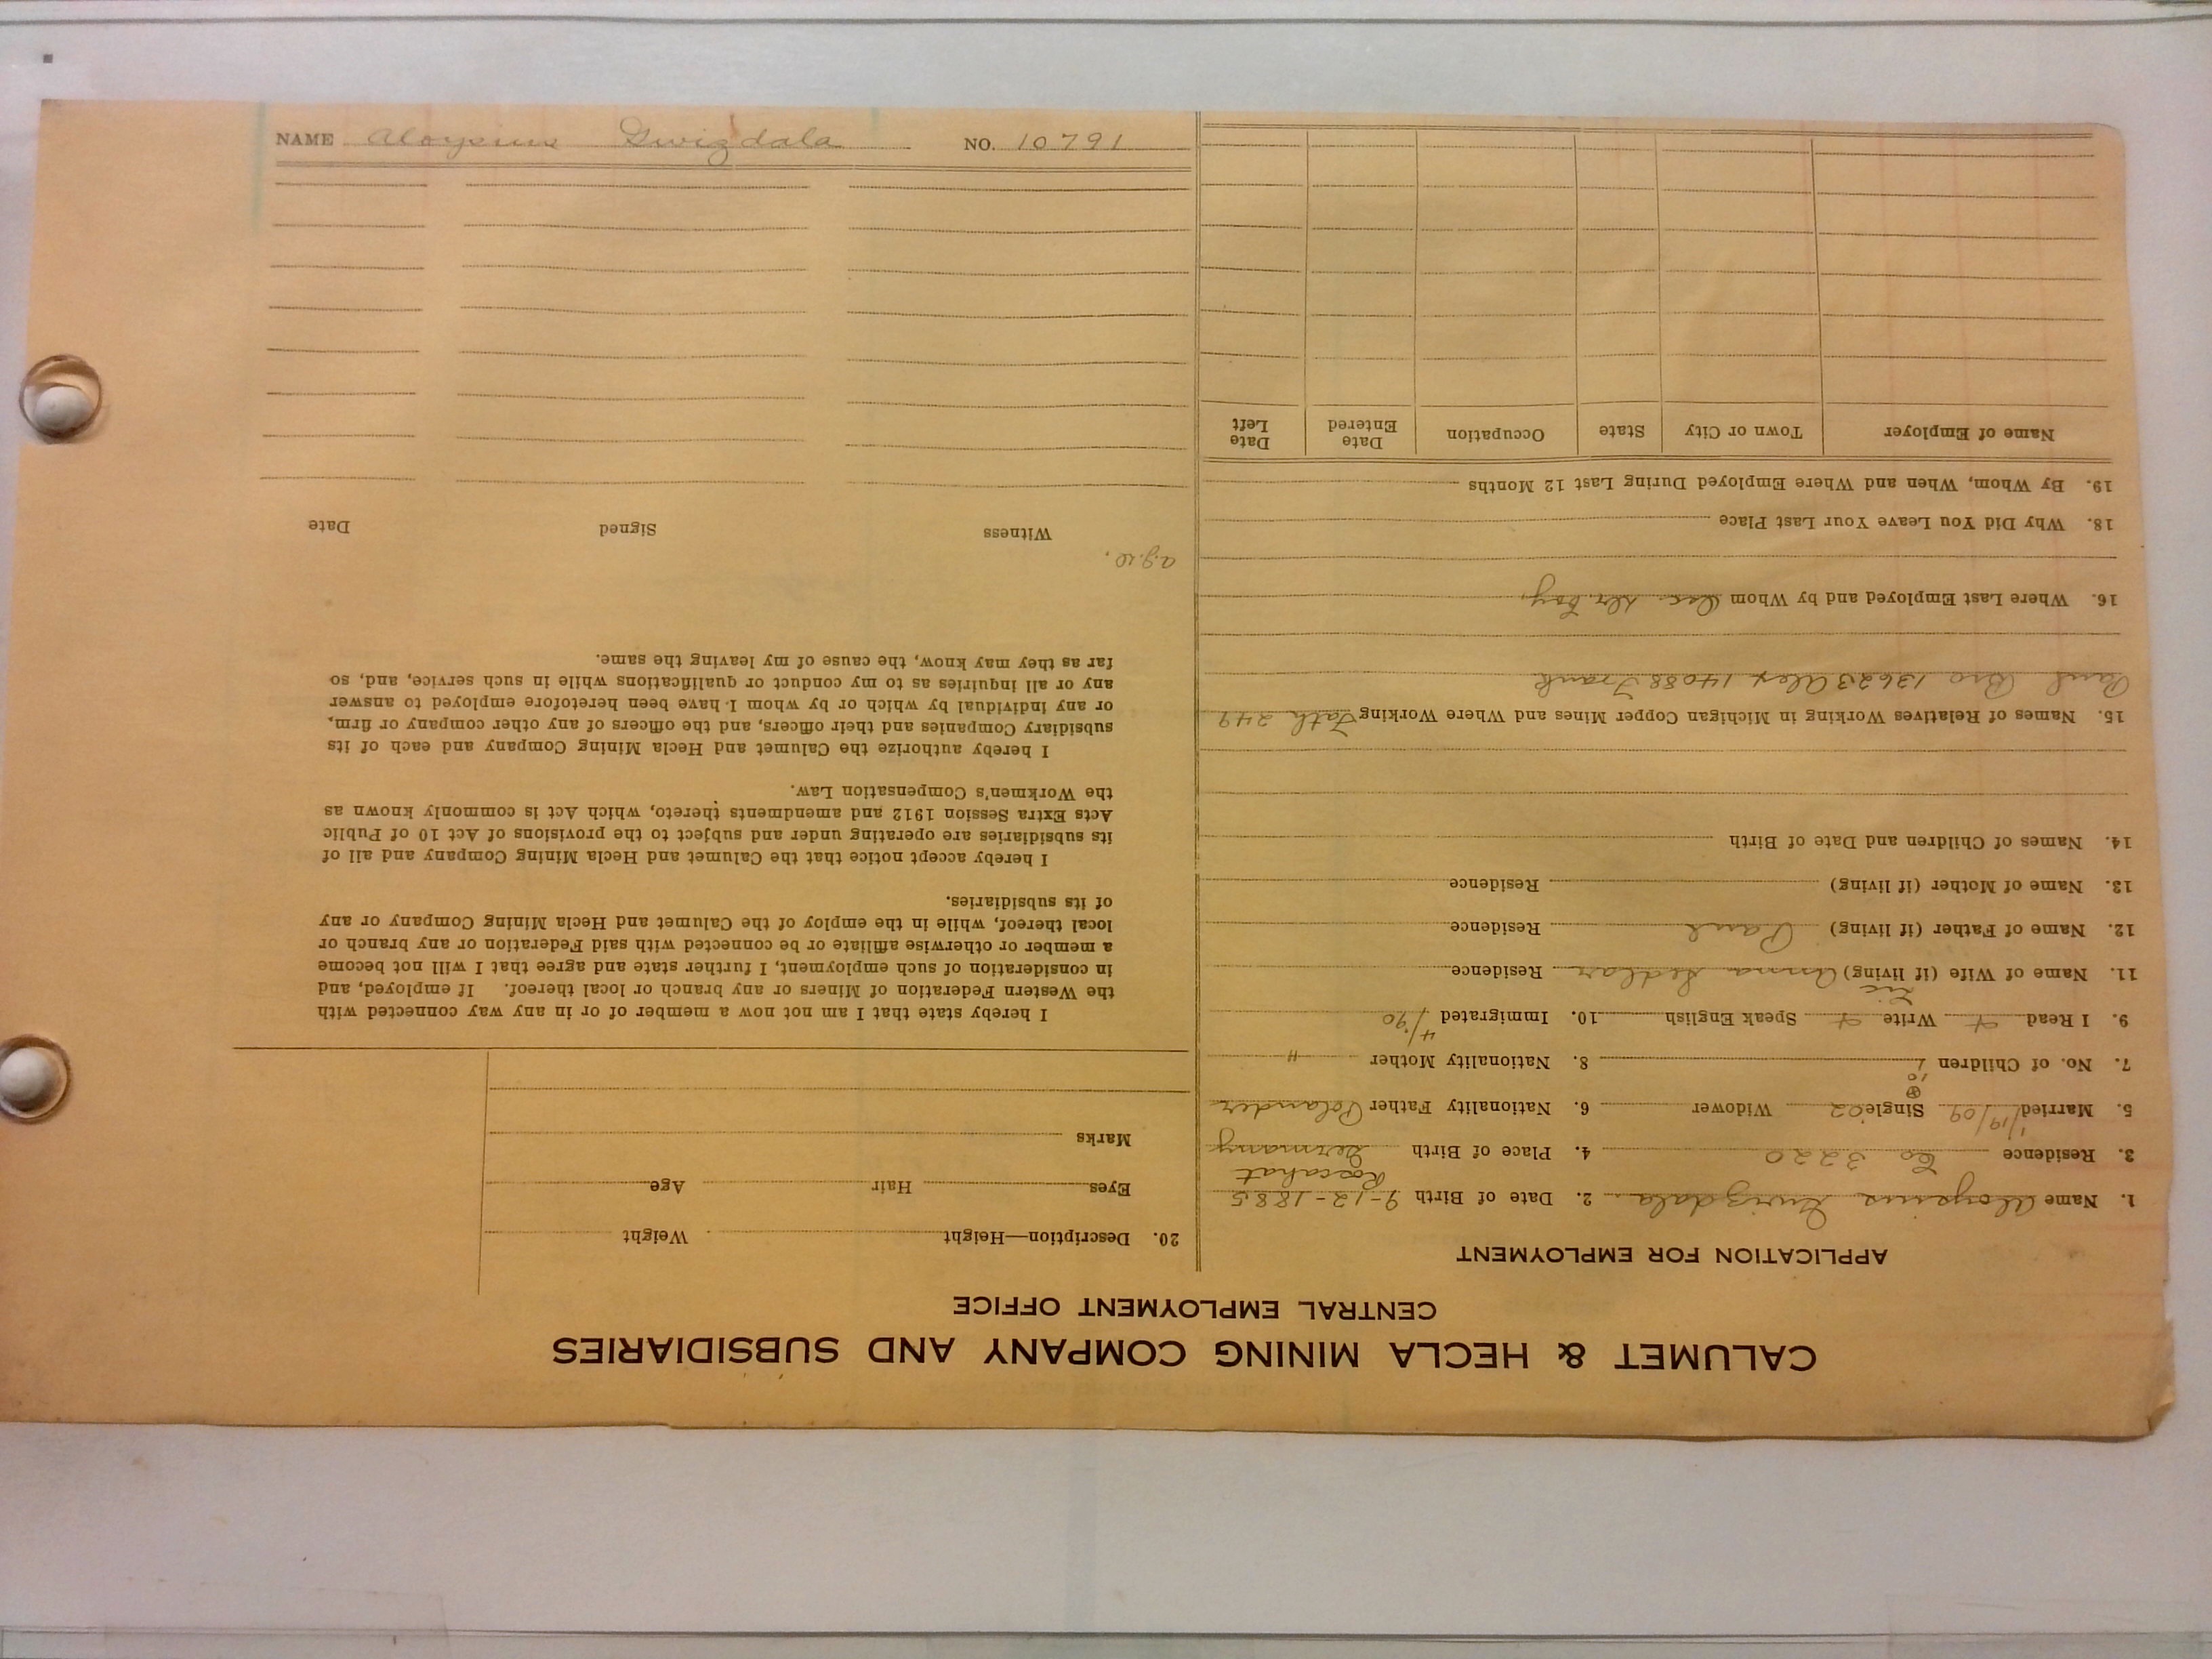 NAME Aloysius Gwizdala NO. 10791
CALUMET & HECLA MINING COMPANY AND SUBSIDIARIES
CENTRAL EMPLOYMENT OFFICE
APPLICATION FOR EMPLOYMENT
1. Name Aloysius Gwizdala 2. Date of Birth 9-12-1885
3. Residence Co 3220 4. Place of Birth Germany
5. Married 1/19/09 Single 02 Widower 6. Nationality Father Polander
10
7. No. of Children 1 8. Nationality Mother "
9. I Read + Write + Speak English 10. Immigrated 4/90
11. Name of Wife (if living) Anna Sedlar Residence
12. Name of Father (if living) Paul Residence
13. Name of Mother (if living) Residence
14. Names of Children and Date of Birth
15. Names of Relatives Working in Michigan Copper Mines and Where Working Fath 249
Paul Bro 13623 Alex 14088 Frank
16. Where Last Employed and by Whom
18. Why Did You Leave Your Last Place
19. By Whom, When and Where Employed During Last 12 Months
Name of Employer Town or City State Occupation Date Entered Date Left
20. Description—Height Weight
Eyes Hair Age
Marks
I hereby state that I am not now a member of or in any way connected with
the Western Federation of Miners or any branch or local thereof. If employed, and
in consideration of such employment, I further state and agree that I will not become
a member or otherwise affiliate or be connected with said Federation or any branch or
local thereof, while in the employ of the Calumet and Hecla Mining Company or any
of its subsidiaries.
I hereby accept notice that the Calumet and Hecla Mining Company and all of
its subsidiaries are operating under and subject to the provisions of Act 10 of Public
Acts Extra Session 1912 and amendments thereto, which Act is commonly known as
the Workmen's Compensation Law.
I hereby authorize the Calumet and Hecla Mining Company and each of its
subsidiary Companies and their officers, and the officers of any other company or firm,
or any individual by which or by whom I have been heretofore employed to answer
any or all inquiries as to my conduct or qualifications while in such service, and, so
far as they may know, the cause of my leaving the same.
Witness Signed Date